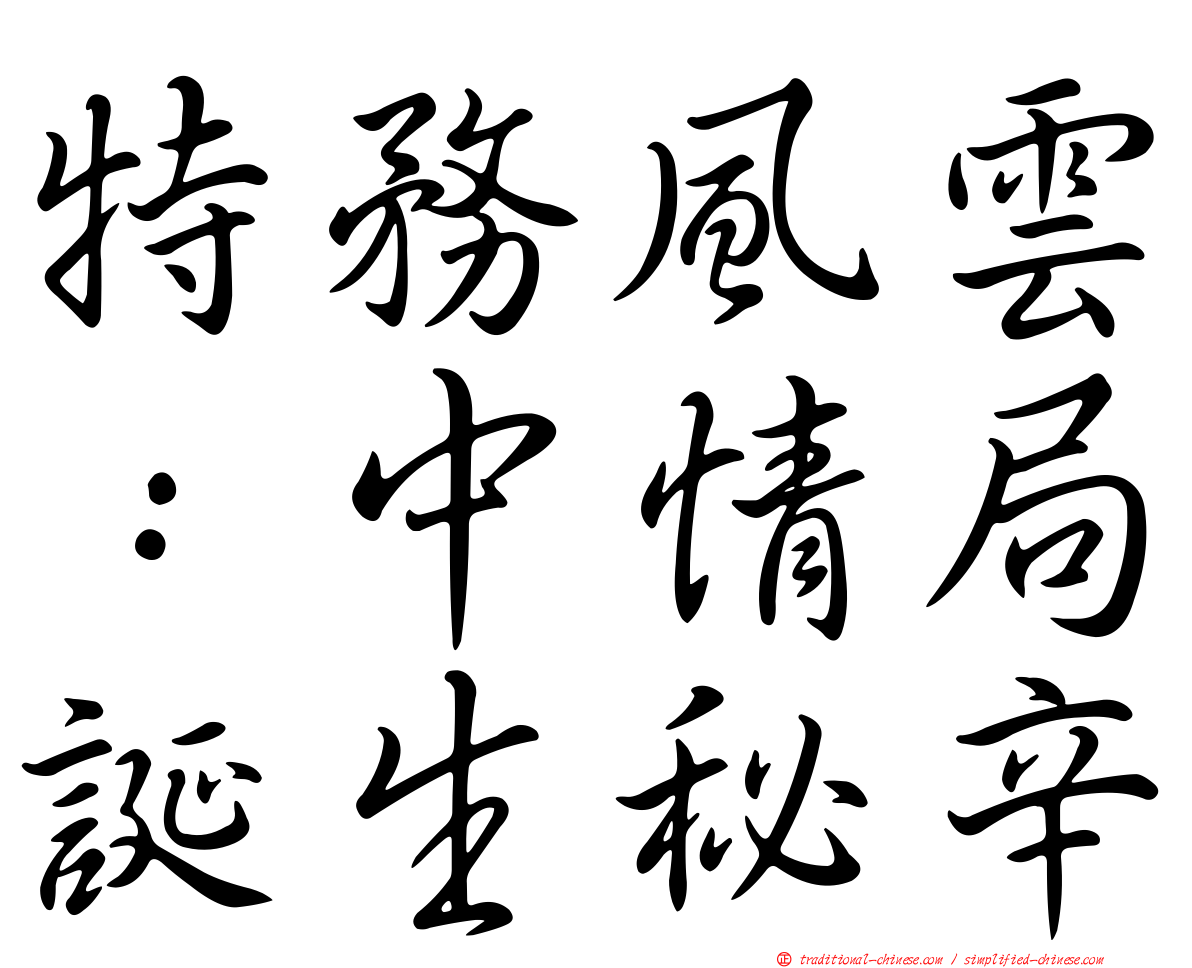 特務風雲
：中情局
誕生秘辛
正 traditional-chinese.com / simplified-chinese.com